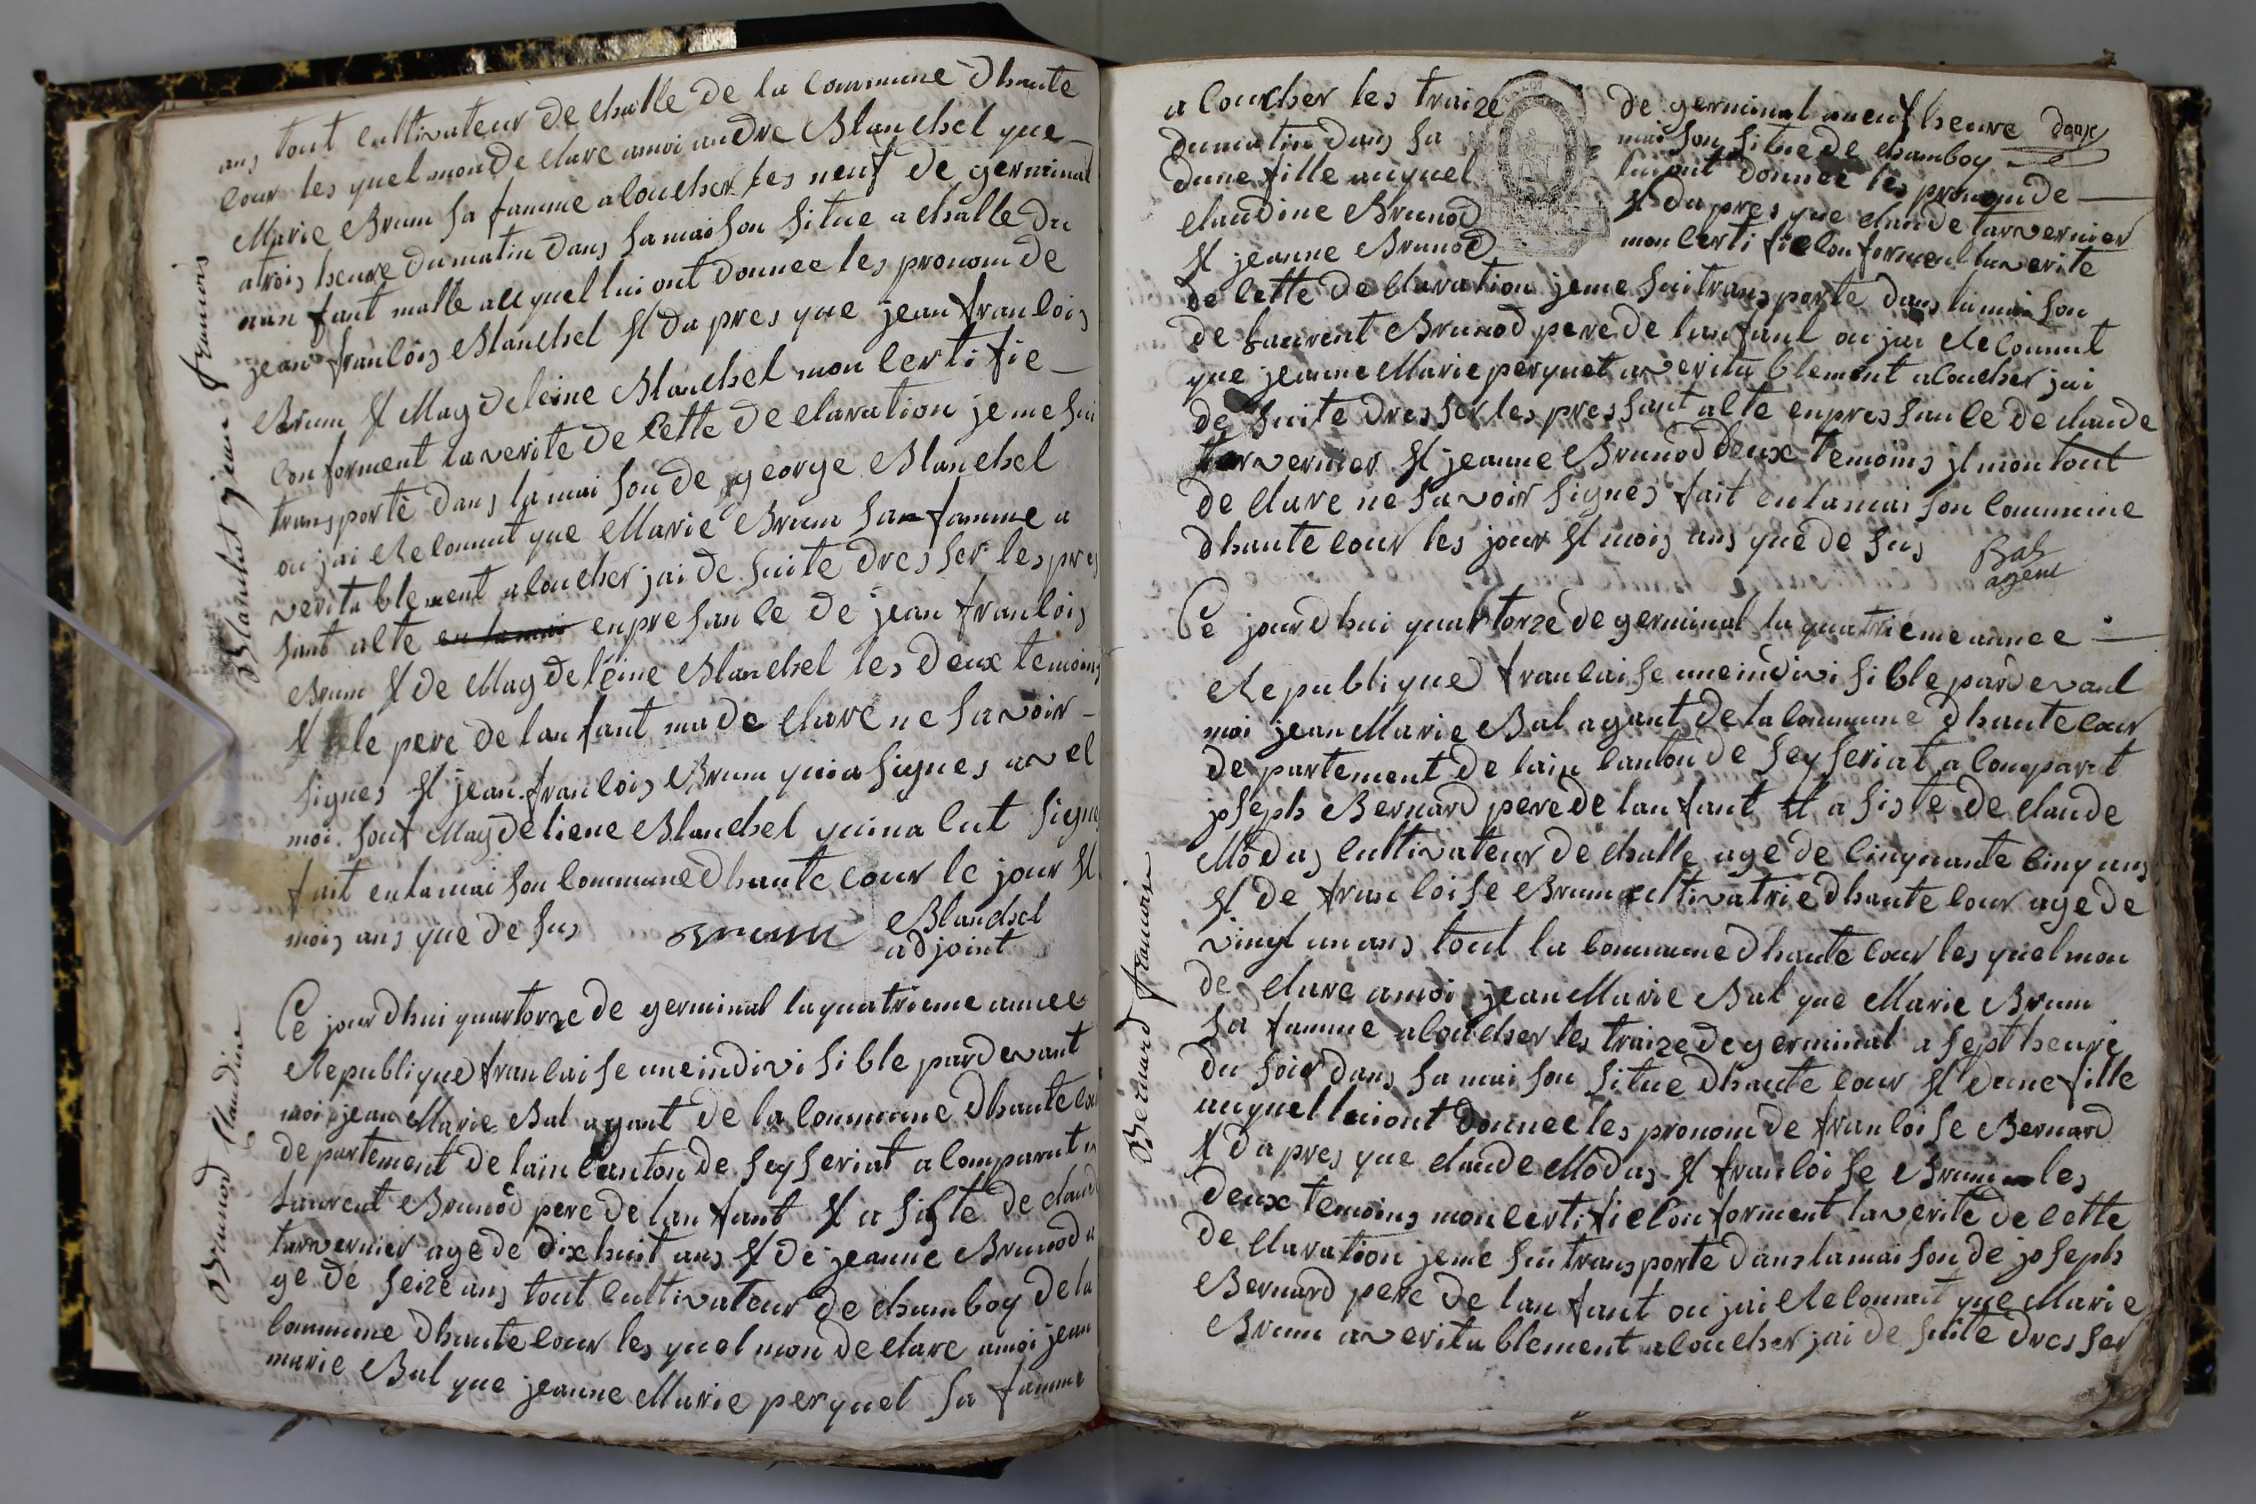 ans tout cultivateur de challe de la commune dhaute
cour les quel monde clare amoi andre Blanchet que
Marie Brum sa famme a coucher les neuf de germinal
atrois heure dumatin dans samaison situe a challe du
nun fant malle auquel lui ont donnee les pronom de
jean francois Blanchet et da pres que jean francois
Brum et Magdeleine Blanchet mon certi fie
Conforment la verite de cette de claration je me sui
transporte dans la mai son de george Blanchet
ou jai Reconnut que Marie Brum san famme a
veritablement acoucher jai de suite dresser les pres
sant acte en la mai enpresance de jean francois
Brum et de Magdeleine Blanchet les deux temoins
et le pere de lanfant ma de clare ne savoir
signes et jean francois Brum qui a signes avec
moi. sout Magdeliene Blanchet quina cut signe
fait en la mai son commune dhaute cour le jour et
mois ans que de sus Brum Blanchet
adjoint
Blanchet jean francois
Ce jourdhui quartorze de germinal la quatrieme annee
Republique francaise uneindivisible pardevant
moi jean Marie Bal agant de la commune dhaute cou
departement de lain canton de seyseriat a comparut
laurent Brunod pere de lanfant et a siste de claude
tarvernier age de dix huit ans et de jeanne Brunod a
ge de seize ans tout cultivateur de chamboy de la
commune dhaute cour les quel mon declare amoi jean
marie Bal que jeanne Marie perquet sa famme
Brunod Claudine
a coucher les traize de germinal a neuf heure dans
dumatin dans sa maison situe de chamboy
dune fille auquel lui ont donnee les pronom de
claudine Brunod et dapres que claude tarvernier
et jeanne Brunod mon certi fie conforment la verite
de cette de claration jeme sui transporte dans la mai son
de laurent Brunod pere de lanfant ou jai Reconnut
que jeanne Marie perquet a veritablement acoucher jai
de suite dresser les pressant acte enpressance de claude
tarvernier et jeanne Brunod deux temoins et mon tout
de clare ne savoir signes fait en la mai son commune
dhaute cour les jour et mois ans que de sus Bal
agent
Ce jourdhui quartorze de germinal la quatrieme annee
Republique francaise uneindivisible pardevant
moi jean Marie Bal agant de la commune dhaute cour
departement de lain canton de seyseriat a comparut
joseph Bernard pere de lanfant et a siste de claude
Modas cultivateur de challe age de cinquante cinq ans
et de francoise Brum cultivatrie dhaute cour age de
vingt un ans tout la commune dhaute cour les quel mon
de clare amoi jean Marie Bal que Marie Brum
sa famme acoucher les traize de germinal a sept heure
du soir dans sa mai son situe dhaute cour et dune fille
auquel lui ont donnee les pronom de francoise Bernard
et dapres que claude Modas et francoise Brum les
deux temoins mon certi fie conforment la verite de cette
de claration jeme sui transporte dans la mai son de joseph
Bernard pere de lanfant ou jai Reconnut que Marie
Brum a veritablement acoucher jai de suite dresser
Bernard francoise